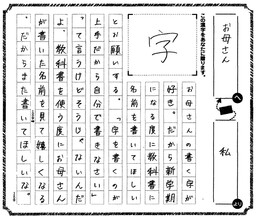 お母さん
へ
私
より
この漢字をあなたに贈ります。
字
好き。だから新学期
になる度に教科書に
名前を書いてほしい
とお願いする。「字を書くのが
上手だから自分で書きなさい」
って言うけどそうじゃないんだ
よ、教科書を使う度にお母さん
が書いた名前を見て嬉しくなる
。だからまた書いてほしいな。